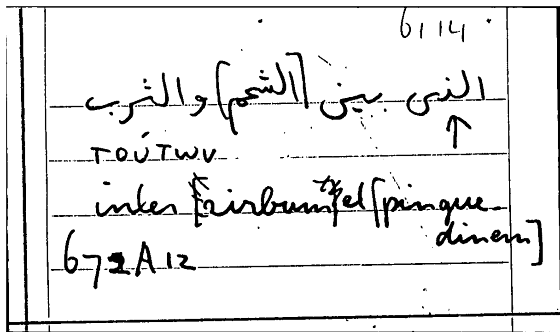 6, 14
الذى بين [الشحم] والثرب
↑
τούτων
inter [zirbum] et [pingue-
dinem]
672A12